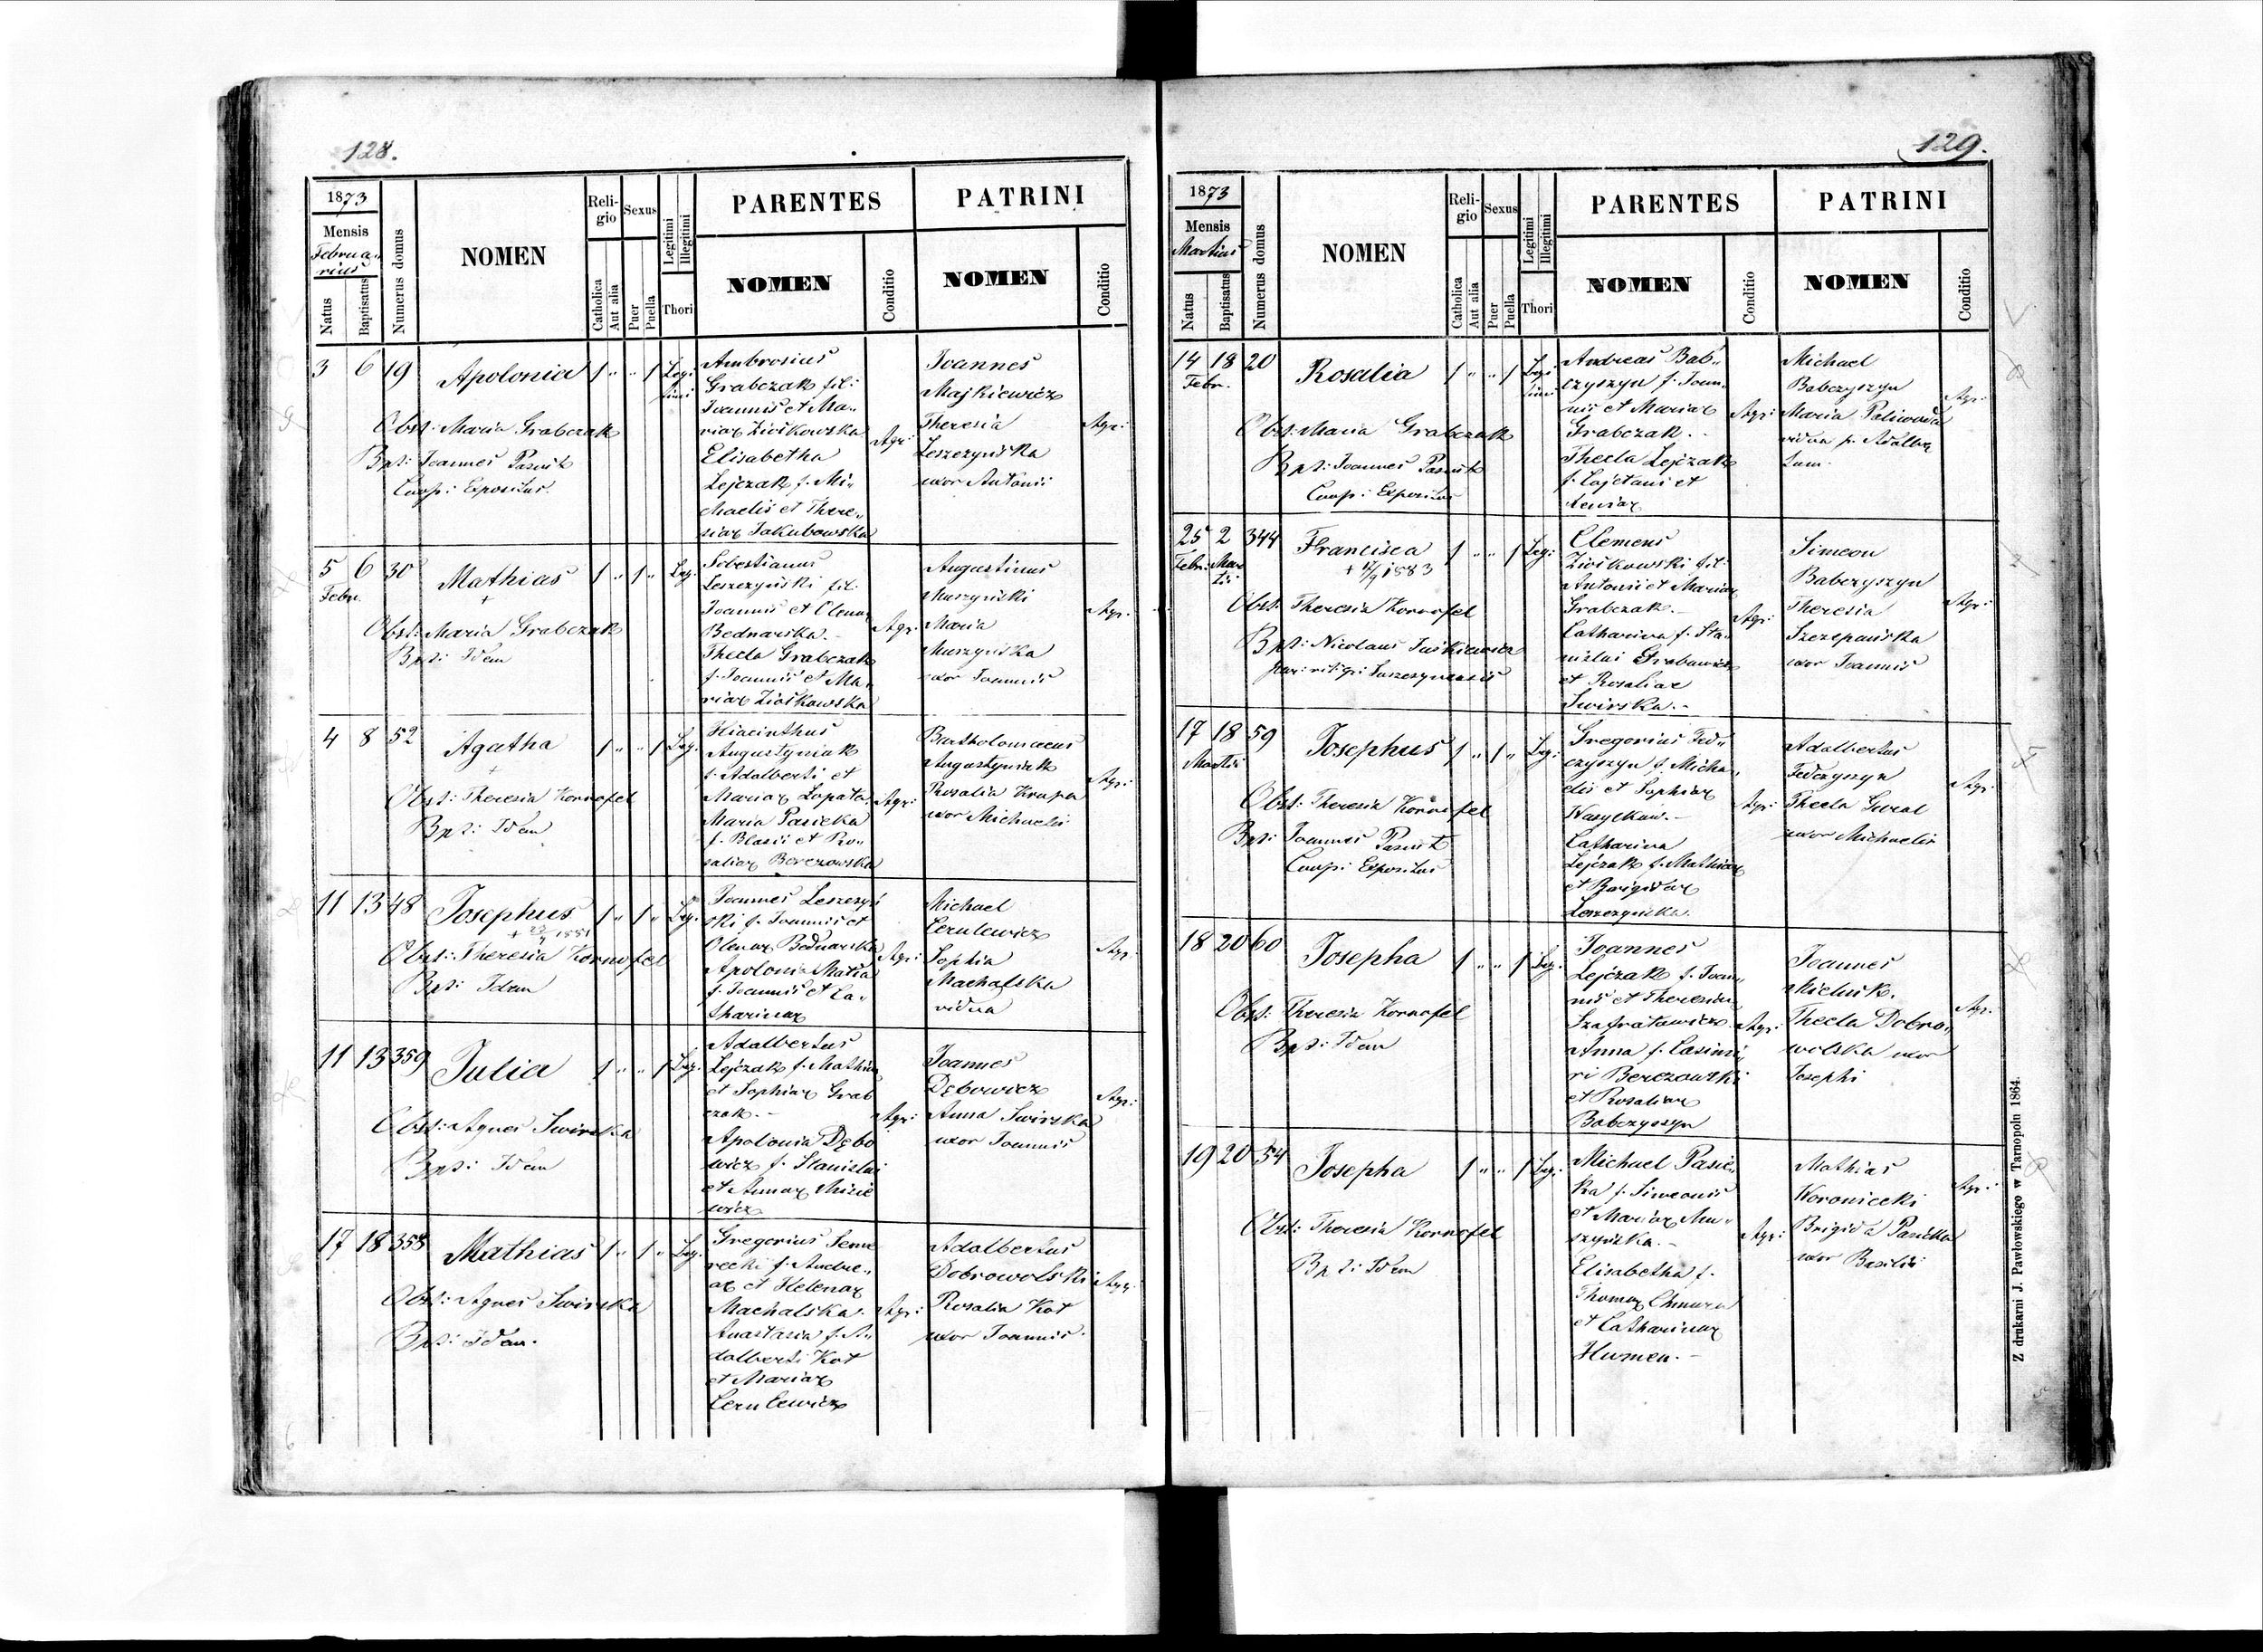 128.
1873
Mensis
Februa-
rius
Natus
Baptisatus
Numerus domus
NOMEN
Reli-
gio
Catholica
Aut alia
Sexus
Puer
Puella
Legitimi
Illegitimi
Thori
PARENTES
NOMEN
Conditio
PATRINI
NOMEN
Conditio
3 6 19 Apolonia 1 " " 1 Legi
timi
Obst: Maria Grabczak
Bpt: Joannes
Coop: Expositus.
Ambrosius
Grabczak fil:
Joannis et Ma-
riae Ziółkowska
Elisabetha
Lejczak f. Mi-
chaelis et There-
siae Jakubowska
Agr:
Joannes
Majkiewicz
Theresia
Leszczyńska
uxor Antonii
Agr:
5 6 30 Mathias 1 " 1 " Leg:
Febr.
+
Obst: Maria Grabczak
Bpt: Idem
Sebestianus
Leszczyński fil:
Joannis et Olenae
Bednarska.-
Thecla Grabczak
f. Joannis et Ma-
riae Ziółkowska
Agr:
Augustinus
Muszyński
Maria
Muszyńska
uxor Joannis
Agr:
4 8 52 Agatha 1 " " 1 Leg.
+
Obst: Theresia Kornofel
Bpt: Idem
Hiacinthus
Augustyniak
f. Adalberti et
Mariae Łopata
Maria Pasieka
f. Blasii et Ro-
saliae Berezowska
Agr:
Bartholomaeus
Augustyniak
Rosalia Krupa
uxor Michaelis
Agr:
11 13 48 Josephus 1 " 1 " Leg.
Obst: Theresia Kornofel
Bpt: Idem
Joannes Leszczyń
ski f. Joannis et
Olenae Bednarska
Apolonia
f. Joannis et Ca-
tharinae
Agr:
Michael
Cerulewicz
Sophia
Machalska
vidua
Agr:
11 13 359 Julia 1 " " 1 Leg.
Obst: Agnes Swirska
Bpt: Idem
Adalbertus
Lejczak f. Mathiae
et Sophiae Grab
czak.-
Apolonia Dębo
wicz f. Stanislai
et Annae
wicz
Agr:
Joannes
Dębowicz
Anna Swirska
uxor Joannis
Agr:
17 18 358 Mathias 1 " 1 " Leg.
Obst: Agnes Swirska
Bpt: Idem.
Gregorius Seme
recki f. Andre-
ae et Helenae
Machalska.
Anastasia f. A-
dalberti Kot
et Mariae
Cerulewicz
Agr:
Adalbertus
Dobrowolski
Rosalia Kot
uxor Joannis.
Agr:
129.
1873
Mensis
Martius
Natus
Baptisatus
Numerus domus
NOMEN
Reli-
gio
Catholica
Aut alia
Sexus
Puer
Puella
Legitimi
Illegitimi
Thori
PARENTES
NOMEN
Conditio
PATRINI
NOMEN
Conditio
14 18 20 Rosalia 1 " " 1 Legi
timi
Febr.
Obst: Maria Grabczak
Bpt: Joannes
Coop: Expositus
Andreas Bab-
czyszyn f. Joan-
nis et Mariae
Grabczak.-
Thecla Lejczak
f. Cajetani et
Agr:
Michael
Babczyszyn
Maria Paliwoda
vidua p. Adalber
tum.
Agr:
25 2 344 Francisca 1 " " 1 Leg:
Febr. Mar
tii
Obst: Theresia Kornofel
Bpt: Nicolaus
Clemens
Ziółkowski fil:
Antonii et Mariae
Grabczak.-
Catharina f. Sta-
nislai Grabowicz
et Rosaliae
Swirska.-
Agr:
Simeon
Babczyszyn
Theresia
Szczepańska
uxor Joannis
Agr:
17 18 59 Josephus 1 " 1 " Leg:
Martii
Obst: Theresia Kornofel
Bpt: Joannes
Coop: Expositus
Gregorius Fed-
czyszyn f. Micha-
elis et Sophiae
Wasylkow.-
Catharina
Lejczak f. Mathiae
et Brigidae
Leszczyńska.
Agr:
Adalbertus
Fedczyszyn
Thecla Gural
uxor Michaelis
Agr:
18 20 60 Josepha 1 " " 1 Leg.
Obst: Theresia Kornofel
Bpt: Idem
Joannes
Lejczak f. Joan-
nis et Theresiae
Szafratowicz.
Anna f. Casimi-
ri Berezowski
et Rosaliae
Babczyszyn
Agr:
Joannes
Mielnik.
Thecla Dobro-
wolska uxor
Josephi
Agr:
19 20 54 Josepha 1 " " 1 Leg:
Obst: Theresia Kornofel
Bpt: Idem
Michael Pasie-
ka f. Simeonis
et Mariae Mu-
szyńska.-
Elisabetha f.
Thomae Chmura
et Catharinae
Humen.-
Agr:
Mathias
Koronicki
Brigida Pasieka
uxor Basilii
Agr:
Z drukarni J. Pawłowskiego w Tarnopolu 1864.